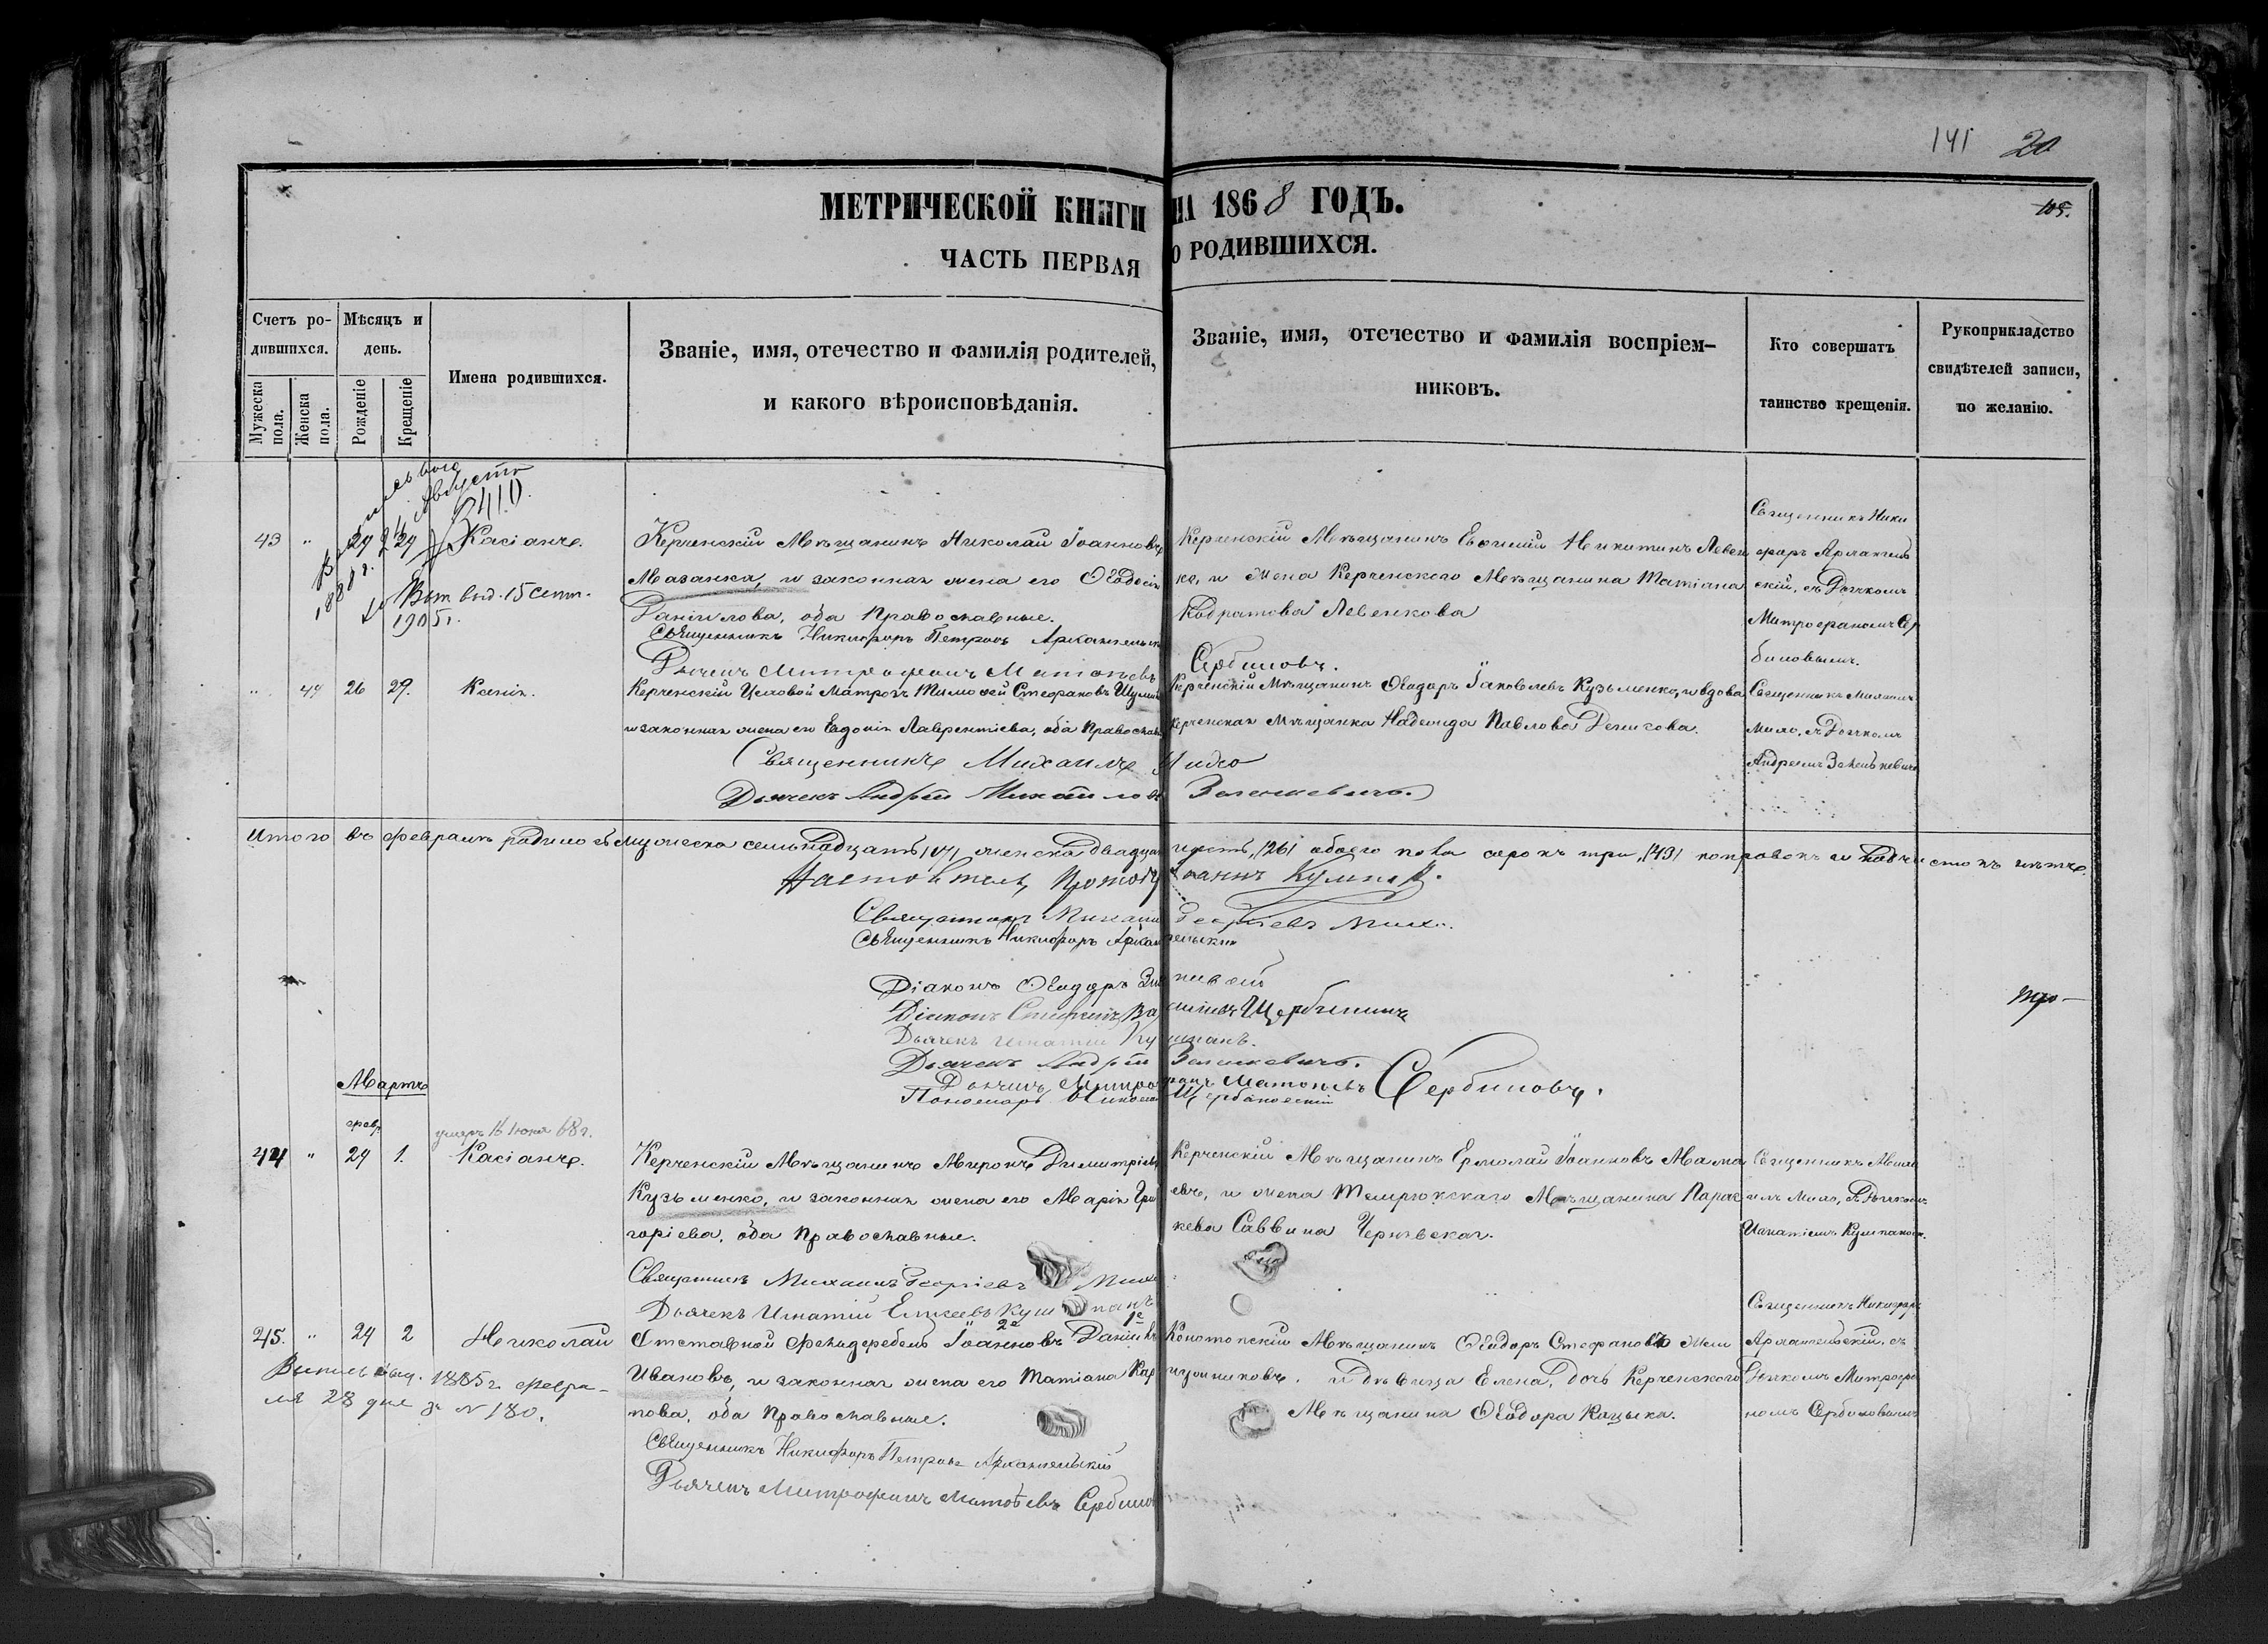 141 20
МЕТРИЧЕСКОЙ КНИГИ НА 1868 ГОДЪ.
105.
ЧАСТЬ ПЕРВАЯ О РОДИВШИХСЯ.
Счетъ родившихся.
Мужеска пола.
Женска пола.
Мѣсяцъ и день.
Рожденіе
Крещеніе
Имена родившихся.
Званіе, имя, отечество и фамилія родителей,
и какого вѣроисповѣданія.
Званіе, имя, отечество и фамилія воспріем-
никовъ.
Кто совершатъ
таинство крещенія.
Рукоприкладство
свидѣтелей записи,
по желанію.
24 Августа
1888 г.
3410.
43 " 29 29 Касіанъ.
Вып. выд. 15 сент.
1905 г.
Керченскій Мѣщанинъ Николай Іоанновъ
Мазанка, и законная жена его Ѳеодосія
Даніилова, оба Православные.
Священникъ Никифоръ Петровъ Архангельск
Дьячекъ Митрофанъ Матѳѣевъ Сербиновъ.
Керченскій Мѣщанинъ Евѳимій Никитинъ Левен
ка, и жена Керченского Мѣщанина Татіана
Кодратова Левенкова
Священникъ Ники
форъ Архангель
скій, съ Дьячкомъ
Митрофаномъ Сер
биновымъ.
" 44 26 29. Ксенія.
Керченскій Цеховой Матросъ Тимоѳей Стефановъ
и законная жена его Евдокія Лаврентіева, оба Православ
Священникъ Михаилъ
Дьячекъ Андрей Михайловъ Зеленкевичъ.
Керченскій Мѣщанинъ Ѳеодоръ Іаковлевъ Кузьменко, и вдова
Керченская Мѣщанка Надежда Павлова Денисова.
Священникъ Михаилъ
съ Дьячкомъ
Андреемъ Зеленкевичъ
Итого въ Февралѣ родилось мужеска семьнадцать, /17/ женска двадцать шесть, /26/ обоего пола сорокъ три, /43/ поправокъ и подчистокъ нѣтъ.
Настоятель, Протоіе Іоаннъ
Священникъ Михаилъ Георгіевъ
Священникъ Никифоръ Архангельскій
Діаконъ Ѳеодоръ
Діаконъ Стефанъ Васильевъ Щербининъ
Дьячекъ Игнатій
Дьячекъ Андрей Зеленкевичъ.
Дьячекъ Митрофанъ Матѳѣевъ Сербиновъ.
Пономарь Николай Щербановскій
Мартъ
февр.
умеръ 16 Іюня 68 г.
44 " 29 1. Касіанъ.
Керченскій Мѣщанинъ Миронъ Димитріевъ
Кузьменко, и законная жена его Марія Гри
горіева, оба Православные.
Священникъ Михаилъ Георгіевъ
Дьячекъ Игнатій Елисеевъ
Керченскій Мѣщанинъ Ермолай Іоанновъ Мама
евъ, и жена Темрюкскаго Мѣщанина Парас
кева Саввина Чернявская.
Священникъ Миха
илъ съ Дьячкомъ
Игнатіемъ
45. " 29 2 Николай
Выпись выд. 1885 г. Февра-
ля 28 дня за № 180.
2е 1е
Отставной Фельдфебель Іоанновъ Даніилъ
Ивановъ, и законная жена его Татіана Кар
пова, оба Православные.
Священникъ Никифоръ Петровъ Архангельскій
Дьячекъ Митрофанъ Матѳѣевъ Сербинов
Конотопскій Мѣщанинъ Ѳеодоръ Стефановъ
и Дѣвица Елена, дочь Керченского
Мѣщанина Ѳеодора Кацыка.
Священникъ Никифоръ
Архангельскій, съ
Дьячкомъ Митрофа
номъ Сербиновымъ